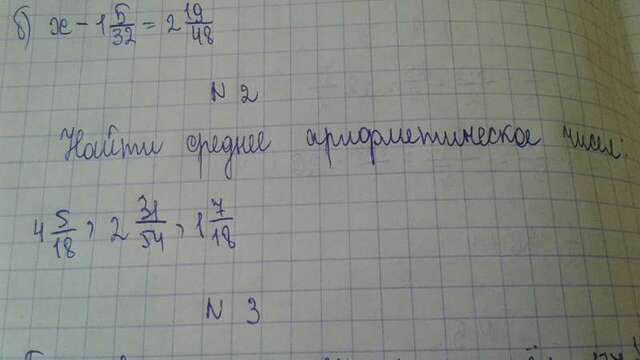 б) x - 1 5/32 = 2 19/48
N 2
Найти среднее арифметическое чисел:
4 5/18, 2 31/54, 1 7/18
N 3